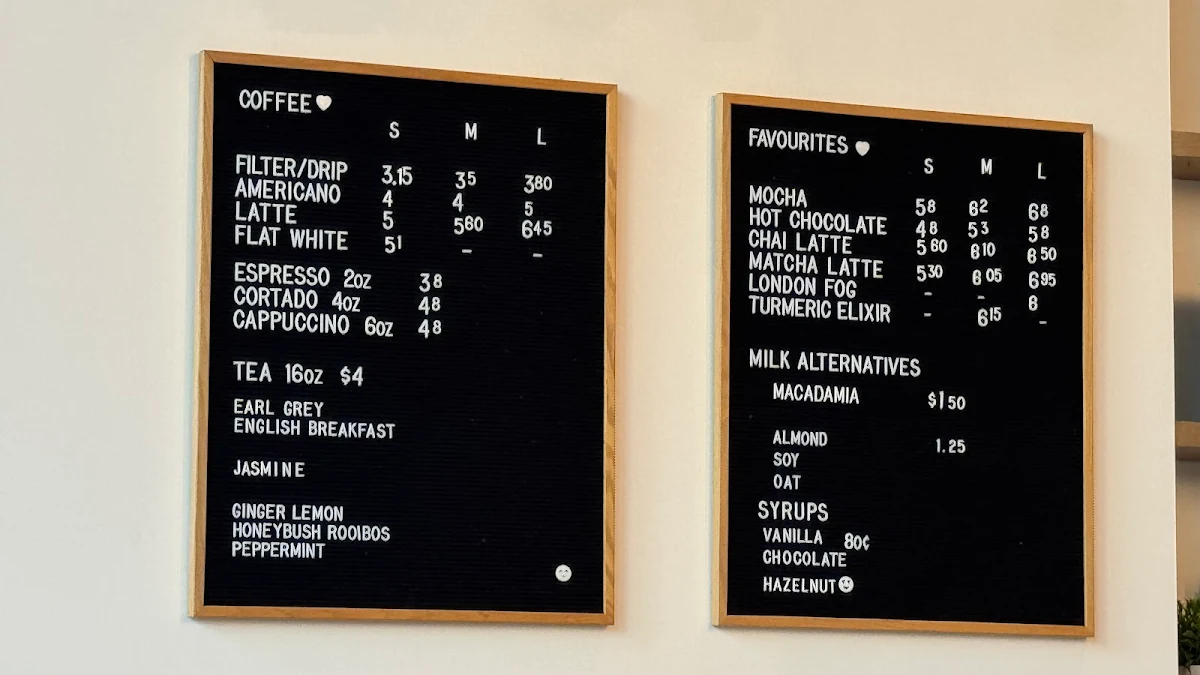 COFFEE
S M L
FILTER/DRIP 3.15 35 380
AMERICANO 4 4 5
LATTE 5 560 645
FLAT WHITE 51 – –
ESPRESSO 2oz 38
CORTADO 4oz 48
CAPPUCCINO 6oz 48
TEA 16oz $4
EARL GREY
ENGLISH BREAKFAST
JASMINE
GINGER LEMON
HONEYBUSH ROOIBOS
PEPPERMINT
FAVOURITES
S M L
MOCHA 58 62 68
HOT CHOCOLATE 48 53 58
CHAI LATTE 560 610 650
MATCHA LATTE 530 605 695
LONDON FOG – – 6
TURMERIC ELIXIR – 615 –
MILK ALTERNATIVES
MACADAMIA $150
ALMOND 1.25
SOY
OAT
SYRUPS
VANILLA 80¢
CHOCOLATE
HAZELNUT